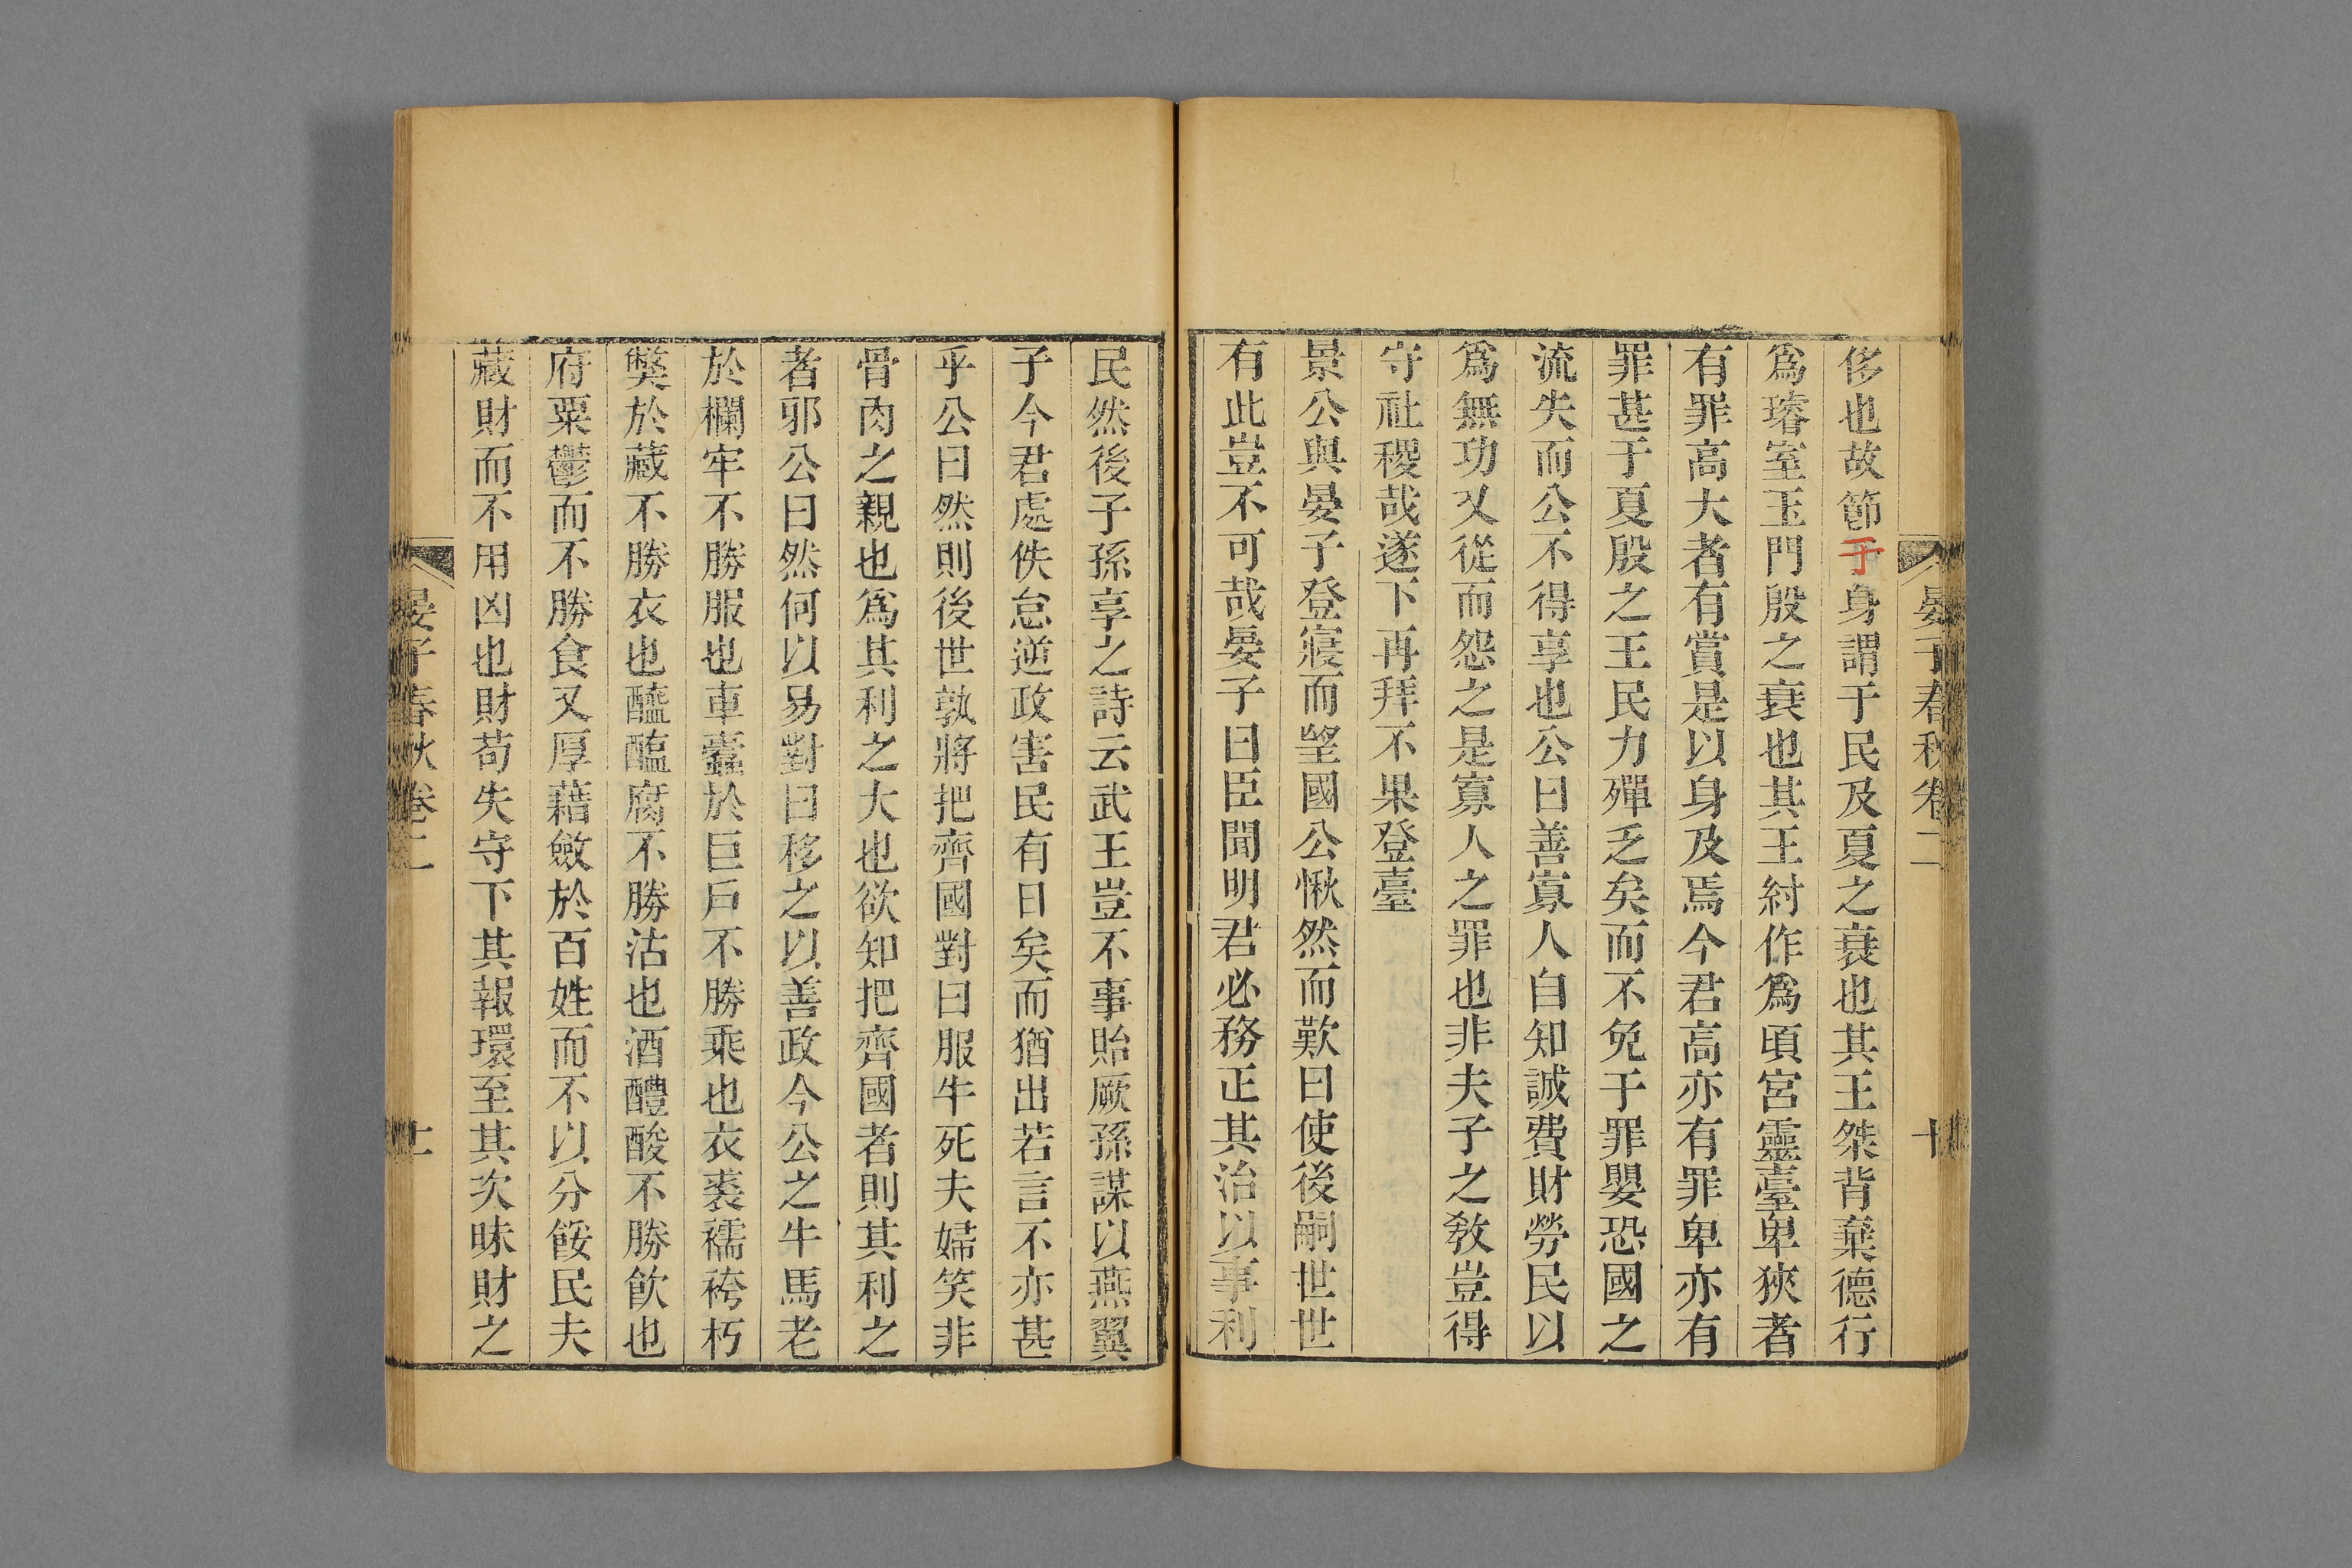 晏子春秋卷二
十
侈也故節于身謂于民及夏之衰也其王桀背棄德行
爲璿室玉門殷之衰也其王紂作爲頃宮靈臺卑狹者
有罪高大者有賞是以身及焉今君高亦有罪卑亦有
罪甚于夏殷之王民力殫乏矣而不免于罪嬰恐國之
流失而公不得享也公曰善寡人自知誠費財勞民以
爲無功又從而怨之是寡人之罪也非夫子之敎豈得
守社稷哉遂下再拜不果登臺
景公與晏子登寑而望國公愀然而歎曰使後嗣世世
有此豈不可哉晏子曰臣聞明君必務正其治以事利
民然後子孫享之詩云武王豈不事貽厥孫謀以燕翼
子今君處佚怠逆政害民有日矣而猶出若言不亦甚
乎公曰然則後世孰將把齊國對曰服牛死夫婦笑非
骨肉之親也爲其利之大也欲知把齊國者則其利之
者邪公曰然何以易對曰移之以善政今公之牛馬老
於欄牢不勝服也車蠹於巨戶不勝乘也衣裘襦袴朽
獘於藏不勝衣也醯醢腐不勝沽也酒醴酸不勝飮也
府粟鬱而不勝食又厚藉斂於百姓而不以分餒民夫
藏財而不用凶也財苟失守下其報環至其次昧財之
晏子春秋卷二
十一